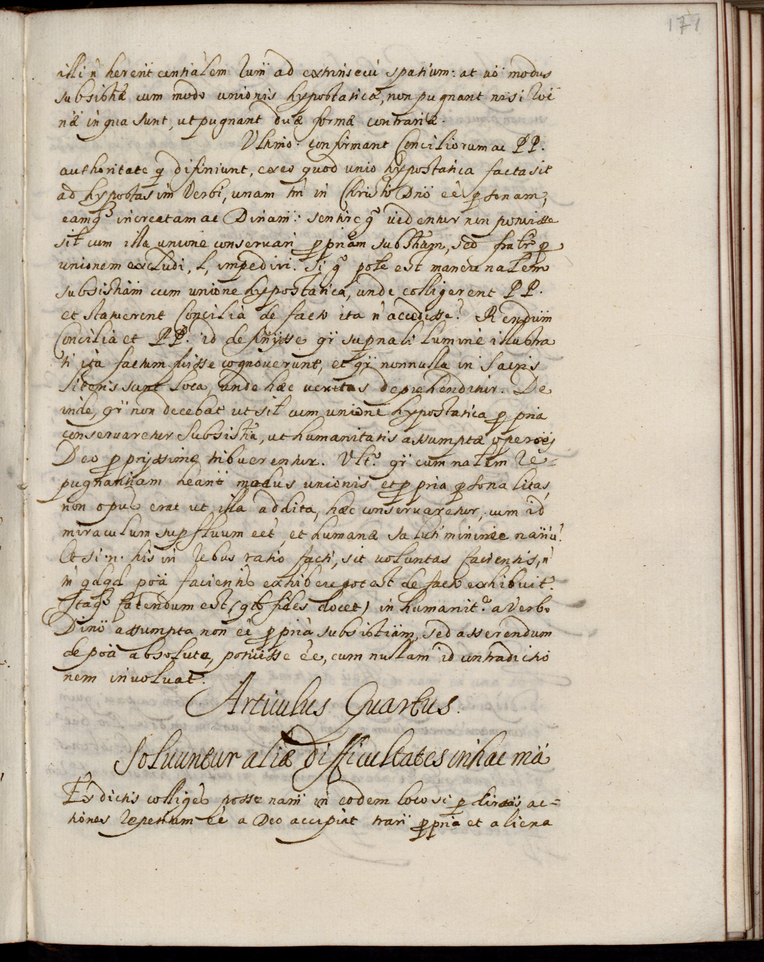 171
illi ñ herent centialem lum̃ ad extrinseci spatium: at uõ modus
subsistẽ cum modo unionis hypostaticæ, non pugnant nisi
in qua sunt, ut pugnant duæ formæ contrariæ.
Ultimo: confirmant Conciliorum ac PP.
authoritate q̃ difiniunt, ex eo quod unio hypostatica facta sit
ad hypostasim Verbi, unam tm̃ in Christo Dnõ eẽ p̃sonam;
eamq̃ increatam ac Diuam̃: sentire gº uidentur non potuisse
sil̃ cum illa unione conservari p̃priam subst̃am, sed
unionem excludi, l, impediri. Si gº põte est manere nãlem
subsistñam cum unione hypostatica, unde colligerent PP.
et statuerent Concilia de facto ita ñ accidisse? Rendum̃
Concilia et PP. id definiisse qã supnãli lumine illustra
ti ita factum fuisse cognoverunt, et qã nonnulla in Sacris
Literis sunt loca, unde hæc veritas deprehenditur. De
inde, qã non decebat ut sil̃ cum unione hypostatica p̃pria
conservaretur subsistñæ, ut humanitatis assumptæ opeões
Deo p̃prijssime tribuerentur. Ultº. qã cum nãlem re-
pugnantiam heant modus unionis, et p̃pria p̃sonalitas,
non opus erat ut illa addita, hæc conservaretur, cum id
miraculum supfluum eẽt, et humanæ saluti minime nariũ.
Et si ñ. his in rebus ratio facti, sit voluntas facientis, ñ
in qdqd poã facientis exhibere potest de facto exhibuit.
Itaq̃ fatendum est (qd̃ fides docet) in humanitẽ a Verbo
Dino assumpta non eẽ p̃priã subsistñam, sed asserendum
de poã absoluta, potuisse eẽ, cum nullam id contradictio
nem involuat.
Articulus Quartus.
Solvuntur aliæ difficultates in hac mã
Ex dictis colliges posse nam̃ in eodem loco si p diversas ac-
tiones repetitum eẽ a Deo accipiat p̃pria et aliena